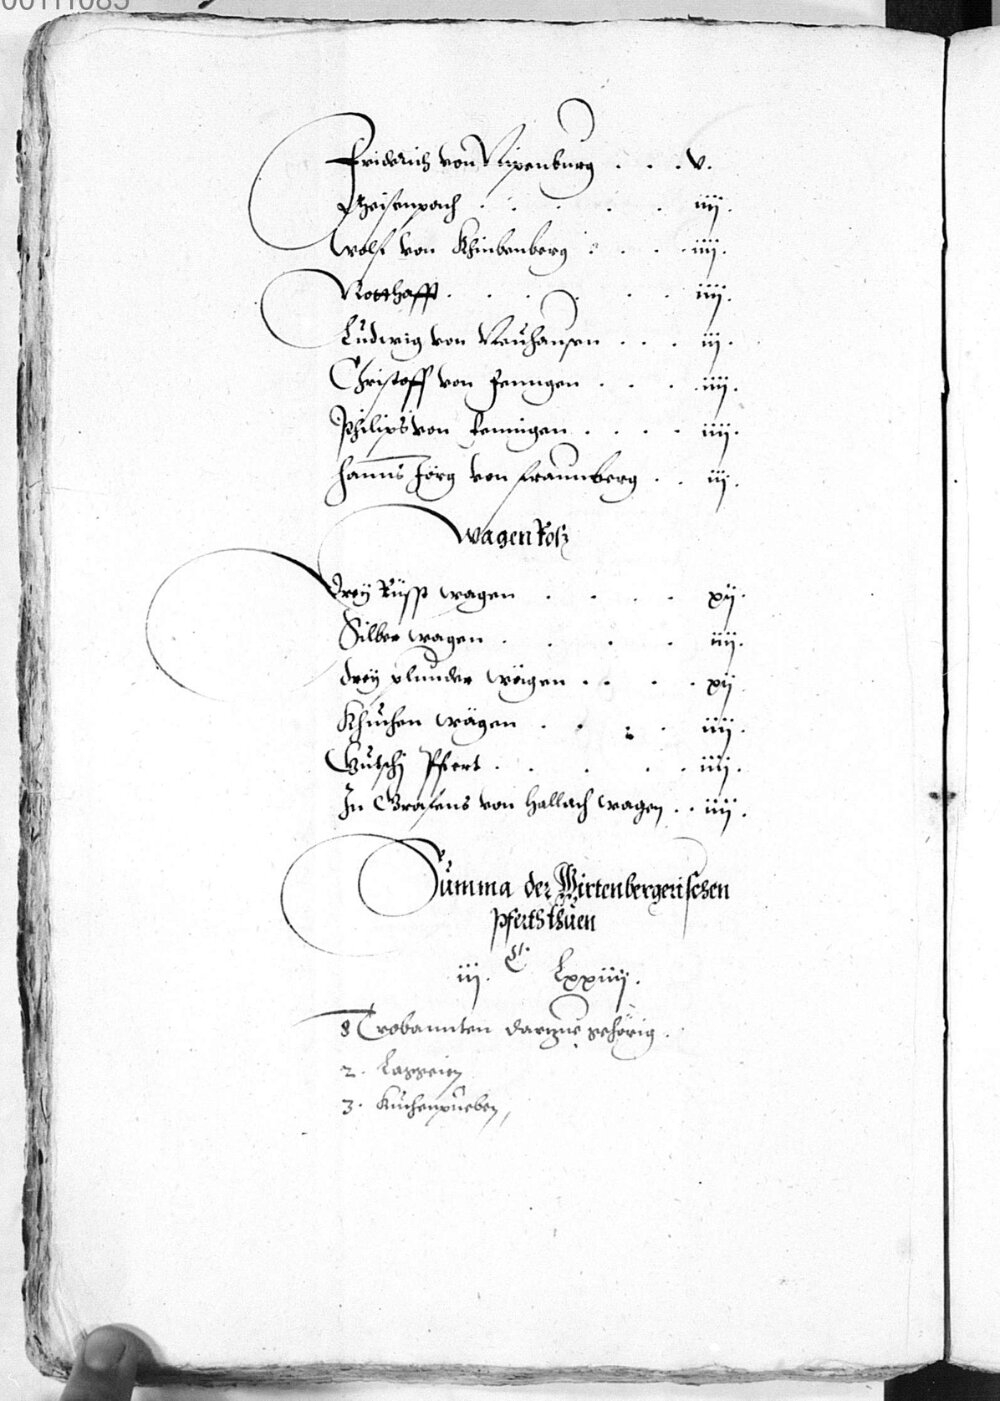 00111085
Friderich von Nipenburg . . . v.
Theisenpach . . . . . iiij.
Wolf von Khinbenberg . . . iiij.
Notthafft . . . . . . iiij.
Ludwig von Neuhausen . . . iij.
Christoff von Fenngen . . . iiij.
Philips von Fenningen . . . . iiij.
Hanns Jörg von fraunberg . . iij.
Wagen Rosz
Drey Rüsst wagen . . . . xij.
Silber wagen . . . . iiij.
drey plunder wägen . . . . xij
Khuchen wägen . . . . iiij.
Gutschj Pfert . . . . . iiij.
In Grafens von Hallach wagen . . iiij.
Summa der Wirtenbergerischen
Pferth thuen
iij. C Lxxiiij.
8 Trabannten darzue gehörig.
2. Laggeien
3. Kuchenpueben,